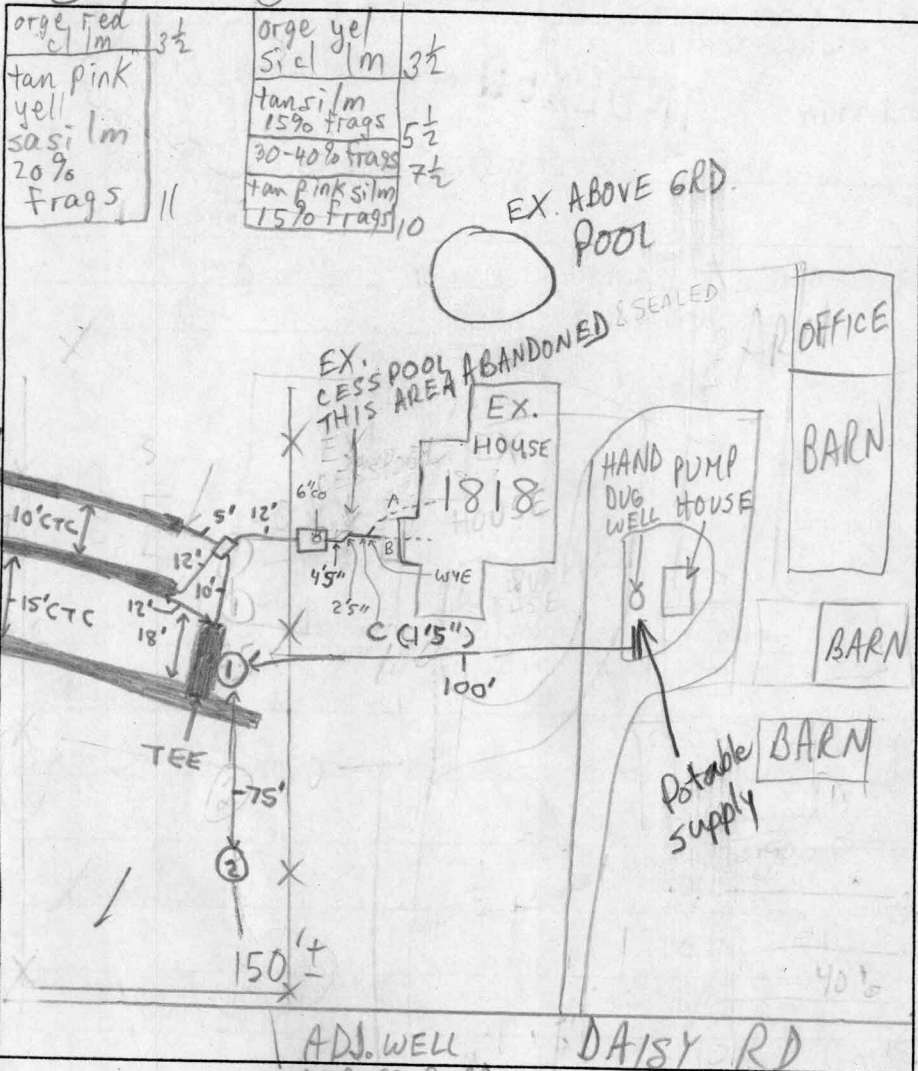 orge red
cl lm
3½
tan pink
yell
sasi lm
20%
frags
11
orge yel
si cl lm
3½
tan si lm
15% frags
5½
30-40% frags
7½
tan pink silm
15% frags
10
EX. ABOVE GRD.
POOL
EX.
CESS POOL
THIS AREA ABANDONED & SEALED
OFFICE
BARN
EX.
HOUSE
1818
HAND
DUG
WELL
PUMP
HOUSE
6"co
A
B
WYE
4'5"
2'5"
C (1'5")
10'CTC
5'
12'
12'
10'
15'CTC
12'
18'
1
100'
TEE
75'
2
BARN
BARN
Potable
supply
150'±
40%
ADJ. WELL
DAISY RD